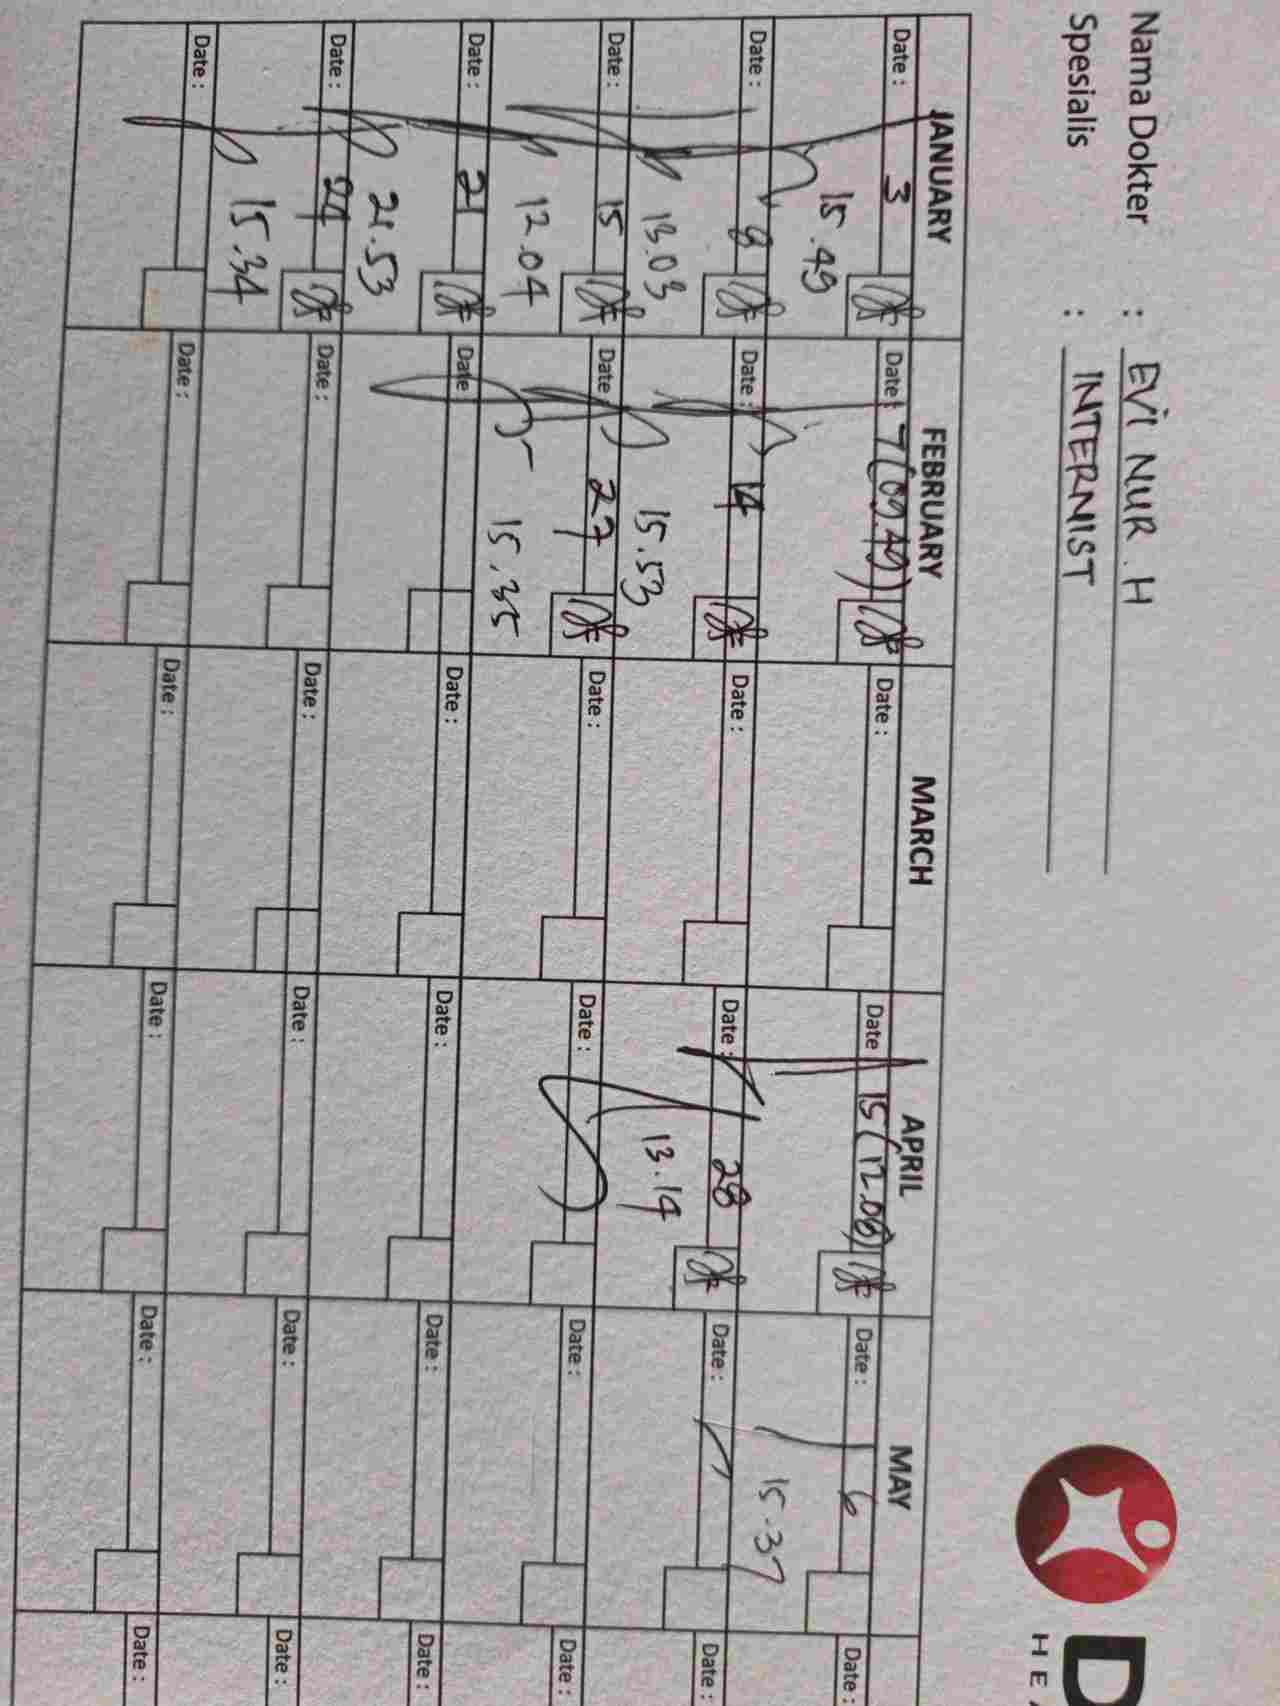 Nama Dokter : EVI NUR. H
Spesialis : INTERNIST
D
HEA
JANUARY FEBRUARY MARCH APRIL MAY
Date : 3 Date : 7 (09.49) Date : Date 15 (12.06) Date : 6 Date :
15.49 15.37
Date : 8 Date : 14 Date : Date : 28 Date : Date :
13.03 15.53 13.14
Date : 15 Date : 27 Date : Date : Date : Date :
12.04 15.35
Date : 21 Date Date : Date : Date : Date :
21.53
Date : 24 Date : Date : Date : Date : Date :
15.34
Date : Date : Date : Date : Date : Date :